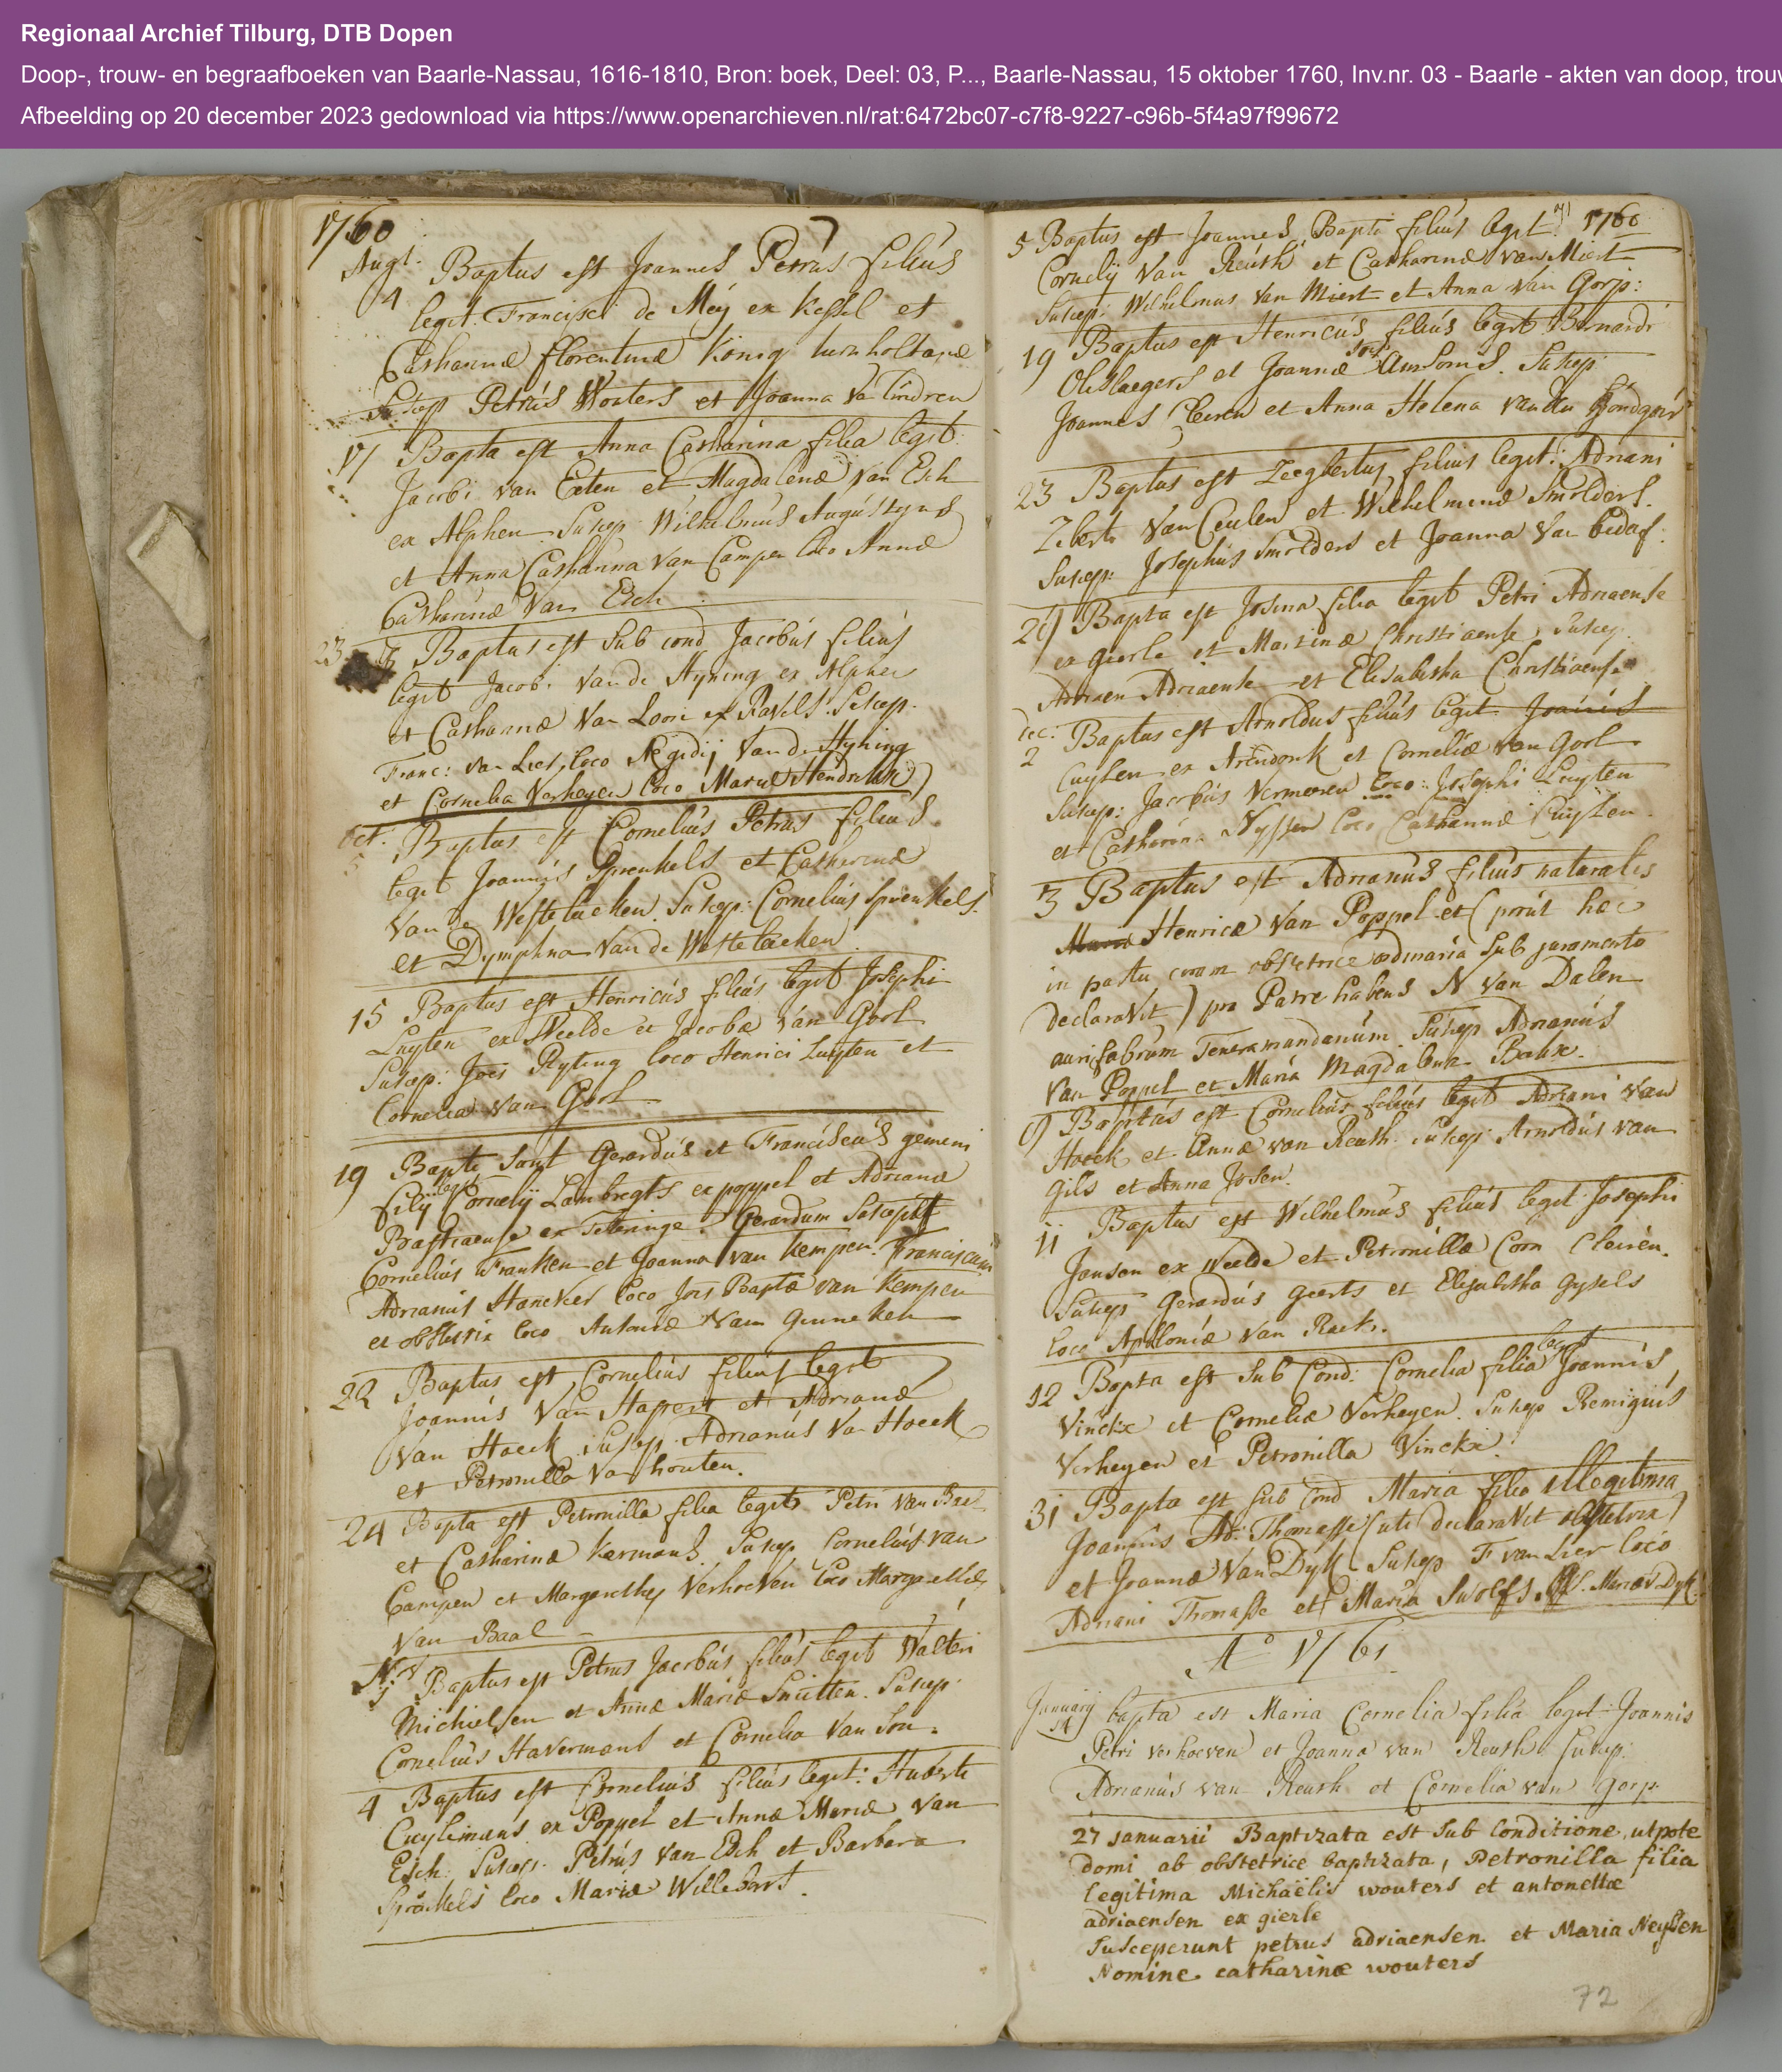 Regionaal Archief Tilburg, DTB Dopen
Doop-, trouw- en begraafboeken van Baarle-Nassau, 1616-1810, Bron: boek, Deel: 03, P..., Baarle-Nassau, 15 oktober 1760, Inv.nr. 03 - Baarle - akten van doop, trouw
Afbeelding op 20 december 2023 gedownload via https://www.openarchieven.nl/rat:6472bc07-c7f8-9227-c96b-5f4a97f99672
1760
Augt. Baptus est Joannes Petrus filius
4 legit. Francisci de Meij ex Kessel et
Catharinæ florentinæ König turnholtanæ
Suscep Petrus Wouters et Joanna Va Lindren
17 Bapta est Anna Catharina filia legit.
Jacobi van Exten et Magdalenæ Van Esch
ex Alphen. Suscep. Wilhelmus Augustyns
et Anna Catharina Van Campen loco Annæ
Catharinæ Van Esch.
23 Baptus est sub cond Jacobus filius
legit Jacobi Van de Hyning ex Alphen
et Catharinæ Van Loon ex Ravels. Suscep.
Franc: Van Lier, loco Ægidij Van de Hyning
et Cornelia Verheyen loco Mariæ Hendrikx
Oct. Baptus est Cornelius Petrus filius
5 legit Joannis Sprenkels et Catharinæ
Van de Westelaeken. Suscep: Cornelius Sprenkels
et Dymphna Van de Westelaeken.
15 Baptus est Henricus filius legit Josephi
Luyten ex Weelde et Jacobæ Van Gorl
Suscep: Joes Ryting loco Henrici Luyten et
Cornelia Van Gorl
19 Bapti sunt Gerardus et Franciscus gemeni
filij legit Cornelij Lambregts ex poppel et Adrianæ
Bastiaense ex Teteringe. Gerardum Suscepit
Cornelius Franken et Joanna Van Kempen. Franciscum
Adrianus Stæncker loco Jois Baptæ van Kempen
et obstetrix loco Antoniæ Van Ginneken
22 Baptus est Cornelius filius legit
Joannis Van Hapert et Adrianæ
Van Hoeck. Suscep. Adrianus Va Hoeck
et Petronilla Va houten.
24 Bapta est Petronilla filia legit. Petri Van Bael
et Catharinæ Kermans. Suscep Cornelius van
Campen et Margarethe Verhoeven loco Margarethæ
Van Baal
Nov Baptus est Petrus Jacobus filius legit Walteri
Michielsen et Annæ Mariæ Smitten. Suscep.
Cornelius Havermans et Cornelia Van Son.
4 Baptus est Cornelius filius legit: Huberti
Cuylemans ex Poppel et Annæ Mariæ Van
Esch. Suscep. Petrus Van Esch et Barbara
loco Mariæ Willebort.
71 1760
5 Baptus est Joannes Bapti filius legit.
Cornelij Van Reuth et Catharinæ Van Miert
Suscep: Wilhelmus Van Miert et Anna Van Gorp:
19 Baptus est Henricus filius legit Bernardi
Olislaegers et Joannæ Ansoms. Suscep.
Joannes et Anna Helena Van
23 Baptus est Zeegbertus filius legit: Adriani
Ziberti Van Ceulen et Wilhelminæ Smolders.
Suscep. Josephus Smolders et Joanna Van bedaf.
Bapta est Josina filia legit Petri Adriaense
ex gierle et Martinæ Christiaense, Suscep.
Adriaen Adriaense et Elisabetha Christiaense
Dec: Baptus est Arnoldus filius legit Joannis
2 Cuylen ex Arendonk et Corneliæ Van Gorl
Suscep: Jacobus Vermeeren loco: Josephi Luyten
et Catharina Nyssen loco Catharinæ Cuylen.
3 Baptus est Adrianus filius naturalis
Mariæ Henricæ Van Poppel et (prout hæc
in partu coram obstetrice ordinaria sub juramento
declaravit) pro Patre habens N Van Dalen
aurifabrum Teneramandanum. Suscep Adrianus
Van Poppel et Maria Magdalena Baux.
Baptus est Cornelius filius legit Adriani Van
Hoeck et Annæ van Reuth. Suscep Arnoldus van
Gils et Anna Josen.
11 Baptus est Wilhelmus filius legit Josephi
Jansen ex Weelde et Petronillæ Corn Cleiren.
Suscep Gerardus Geerts et Elisabetha Gysels
loco Apolloniæ Van Raek.
12 Bapta est sub Cond: Cornelia filia legit Joannis
Vinckx et Corneliæ Verheyen. Suscep Remigius
Verheyen et Petronilla Vinckx.
31 Bapta est sub Cond Maria filia illegitima
Joannis Ad: Thomasse (uti declaravit obstetrix)
et Joannæ Van Dyk Suscep F van Lier loco
Adriani Thomasse et Maria Swolfs. Mariæ V Dyk.
A° 1761
Januarij bapta est Maria Cornelia filia legit Joannis
14 Petri verhoeven et Joannæ van Reuth Suscep.
Adrianus van Reuth et Cornelia van Gorp.
27 januarii Baptizata est sub Conditione, utpote
domi ab obstetrice baptizata, Petronilla filia
legitima Michaëlis wouters et antonettæ
adriaensen ex gierle
Susceperunt petrus adriaensen et Maria Neyssen
Nomine catharinæ wouters
72